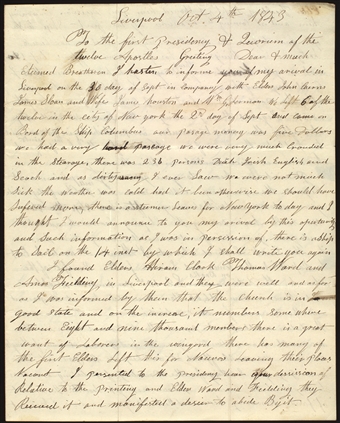 Liverpool Oct. 4th 1843
To the first Presidency & Quorum of the
twelve Apostles Greeting Dear & much
esteemed Breathren I hasten to informe you of my arrival in
Liverpool on the 30 day of Sept in Company with Elders John Cairns
James Sloan and Wife James houston and Wm we left 6 of the
twelve in the city of New york the 2d day of Sept and came on
Bord of the Ship Columbus our pasage money was five Dollars
we had a very hard passage we were very much Crouded
in the Stearage, there was 236 persons Dutch Irish English and
Scoch and as as I ever Saw we were not much
Sick the weather was cold had it been we should have
Sufered more, there is a steamer leaves for New york to day and I
thought I would announce to you my arival by this opertunity
and Such information as I was in possession of, there is a Ship
to Sail on the 14 inst by which I shall write you again
I found Elders Hiram Clark Thomas Ward and
Amos Fielding, in Liverpool and they were well and as far
as I was informed by them that the Church is in a
good state and on the increase, its numbers some where
between Eight and nine thousand members there is a great
want of Laborers in the vineyard there has many of
the first Elders Left this for Nauvoo leaving their places
Vacant. I presented to the presiding here your decision
Relative to the printing and Elder Ward and Fielding they
Received it and manifested a desire to abide By it